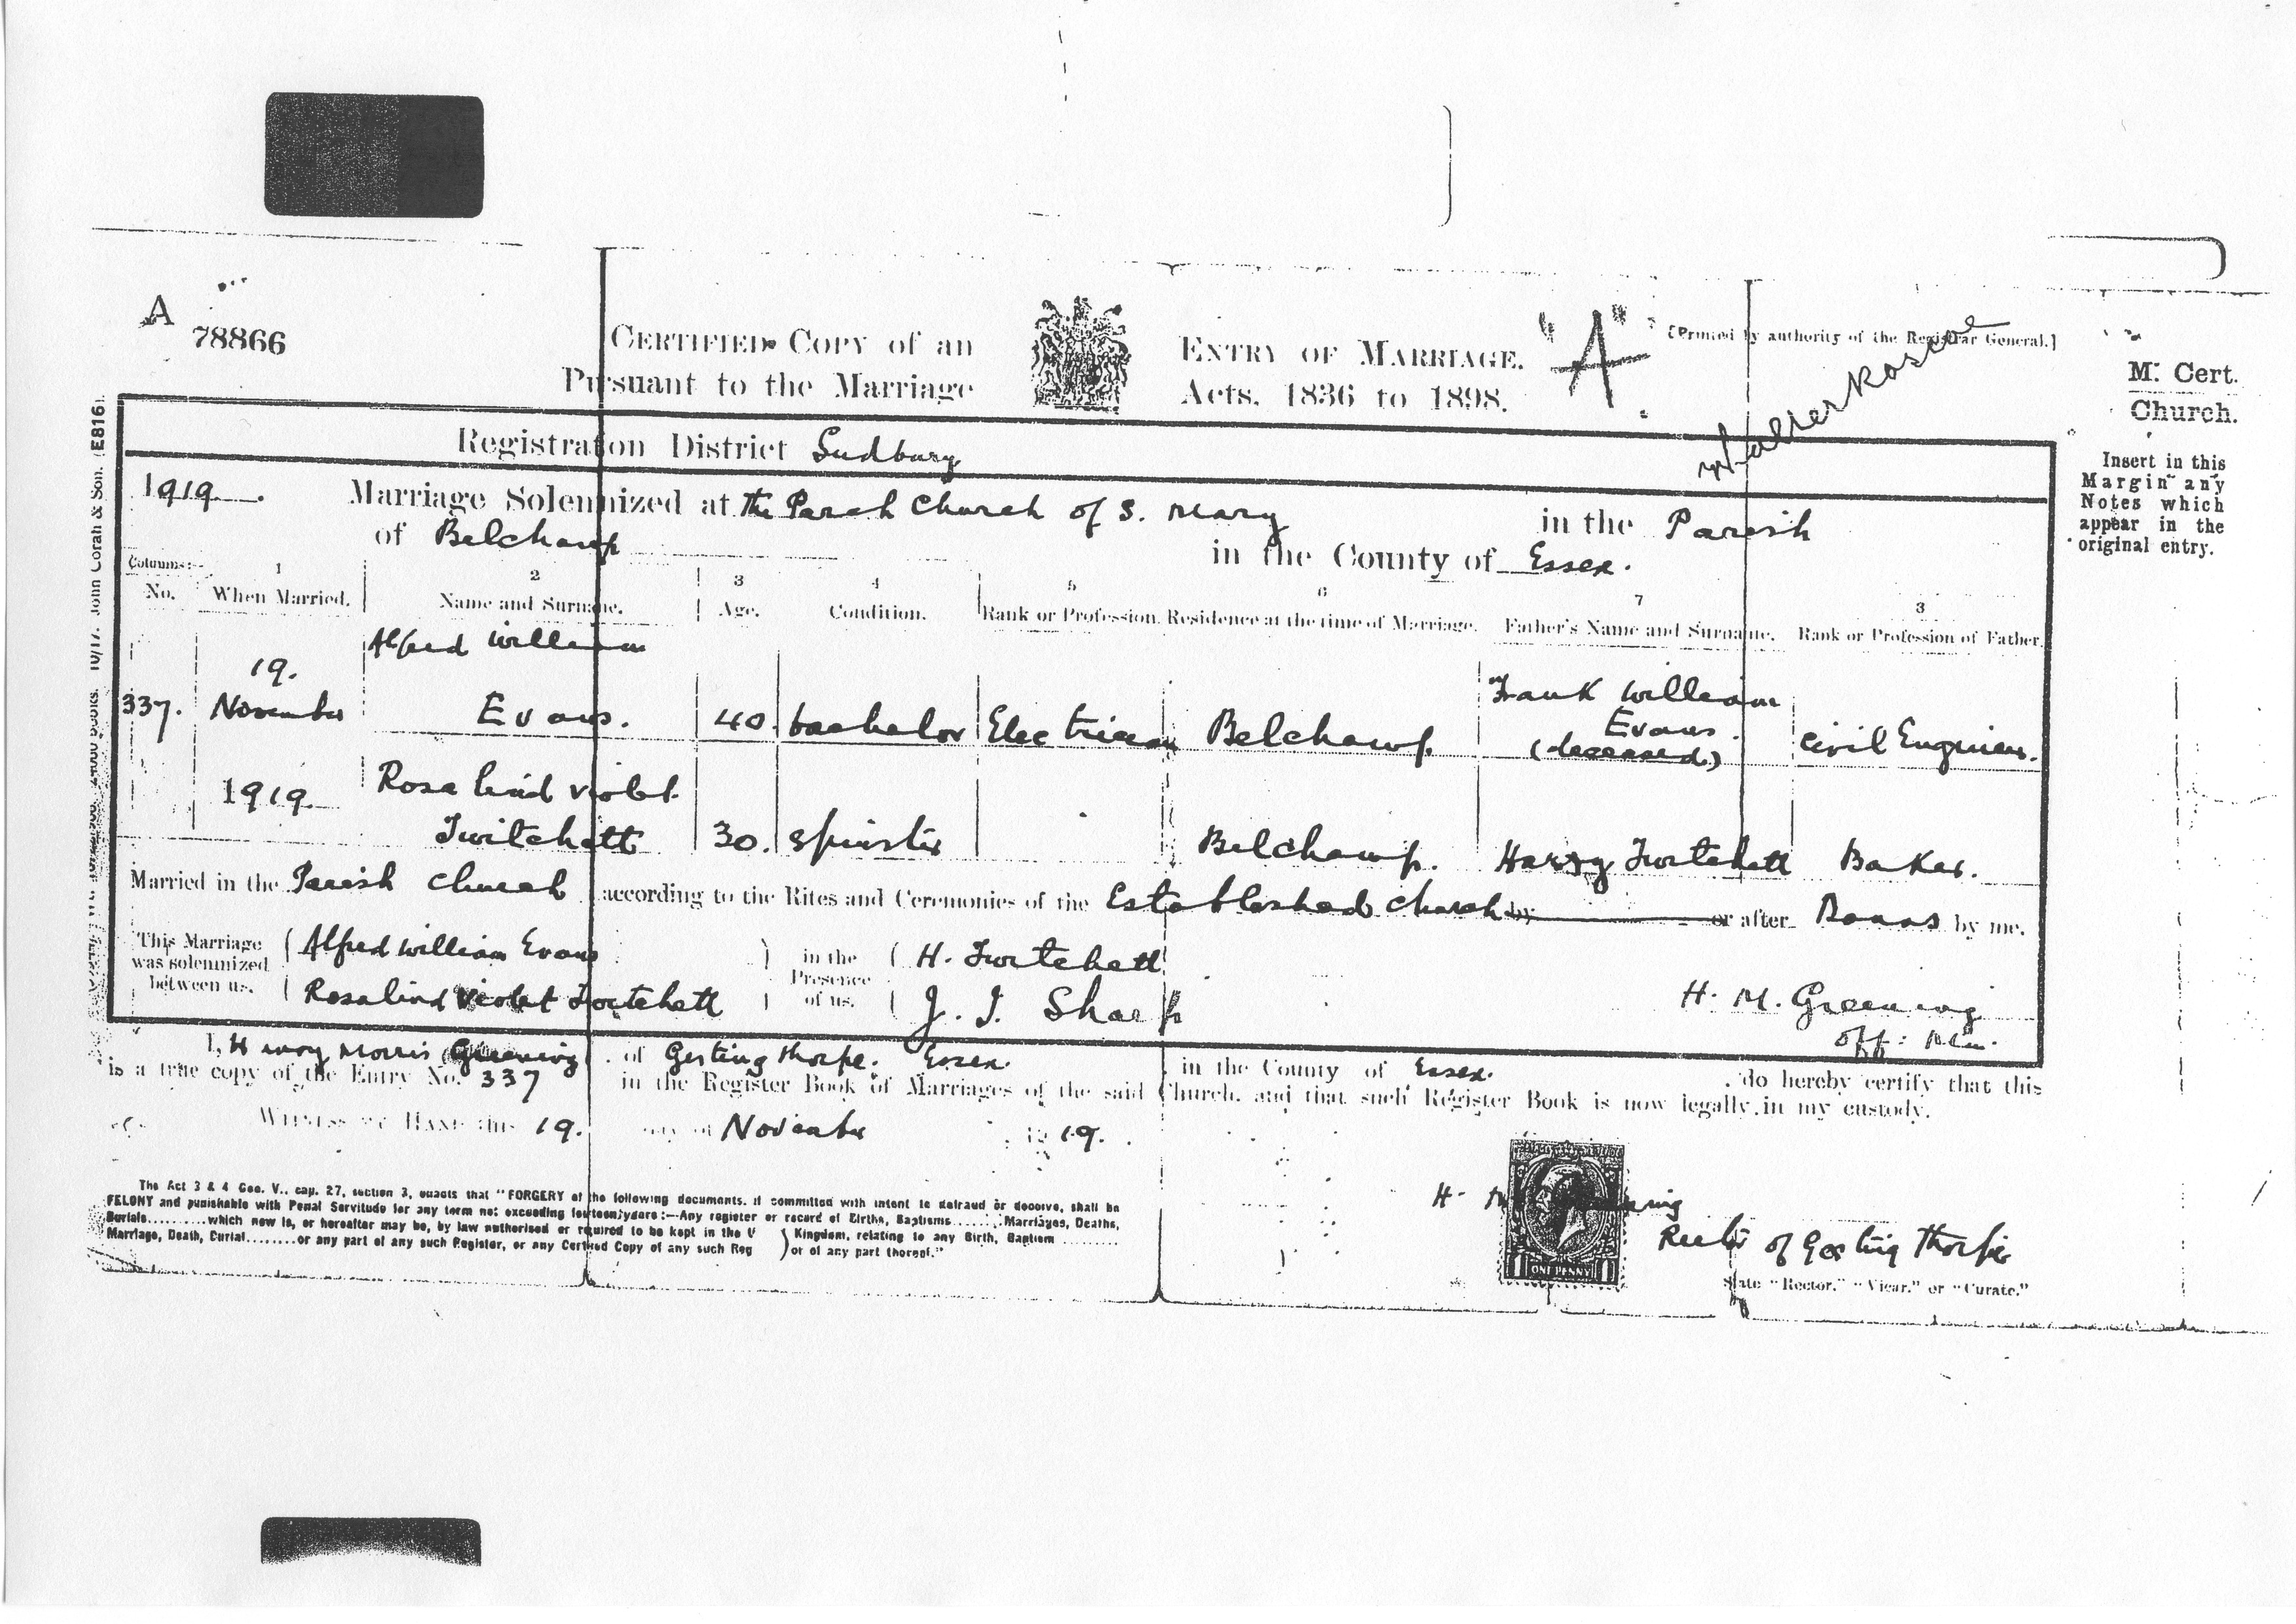 A
78866
CERTIFIED COPY of an ENTRY OF MARRIAGE. "A". [Printed by authority of the Registrar General.]
Pursuant to the Marriage Acts, 1836 to 1898.
M. Cert.
Church.
Insert in this
Margin any
Notes which
appear in the
original entry.
Registration District Sudbury
1919. Marriage Solemnized at the Parish Church of S. Mary in the Parish
of Belchamp in the County of Essex.
Columns:- 1 2 3 4 5 6 7 8
No. When Married. Name and Surname. Age. Condition. Rank or Profession. Residence at the time of Marriage. Father's Name and Surname. Rank or Profession of Father.
337. 19. November 1919. Alfred William Evans. 40. bachelor Electrician Belchamp. Frank William Evans (deceased) Civil Engineer.
Rosalind Violet Twitchett 30. Spinster Belchamp. Harry Twitchett Baker.
Married in the Parish Church according to the Rites and Ceremonies of the Established Church by or after Banns by me,
This Marriage was solemnized between us, Alfred William Evans in the Presence of us, H. Twitchett
Rosalind Violet Twitchett J. J. Sharp H. M. Greening
Off: Min.
I, Henry Morris Greening of Gestingthorpe, Essex in the County of Essex. do hereby certify that this
is a true copy of the Entry No. 337 in the Register Book of Marriages of the said Church, and that such Register Book is now legally in my custody.
WITNESS MY HAND this 19. day of November 1919.
The Act 3 & 4 Geo. V., cap. 27, section 3, enacts that "FORGERY of the following documents, if committed with intent to defraud or deceive, shall be
FELONY and punishable with Penal Servitude for any term not exceeding fourteen years:—Any register or record of Births, Baptisms ...... Marriages, Deaths,
Burials.........which now is, or hereafter may be, by law authorised or required to be kept in the U Kingdom, relating to any Birth, Baptism .........
Marriage, Death, Burial........or any part of any such Register, or any Certified Copy of any such Reg or of any part thereof."
ONE PENNY
Rector of Gestingthorpe
State "Rector," "Vicar," or "Curate."
10/17. John Corah & Son. (E816).